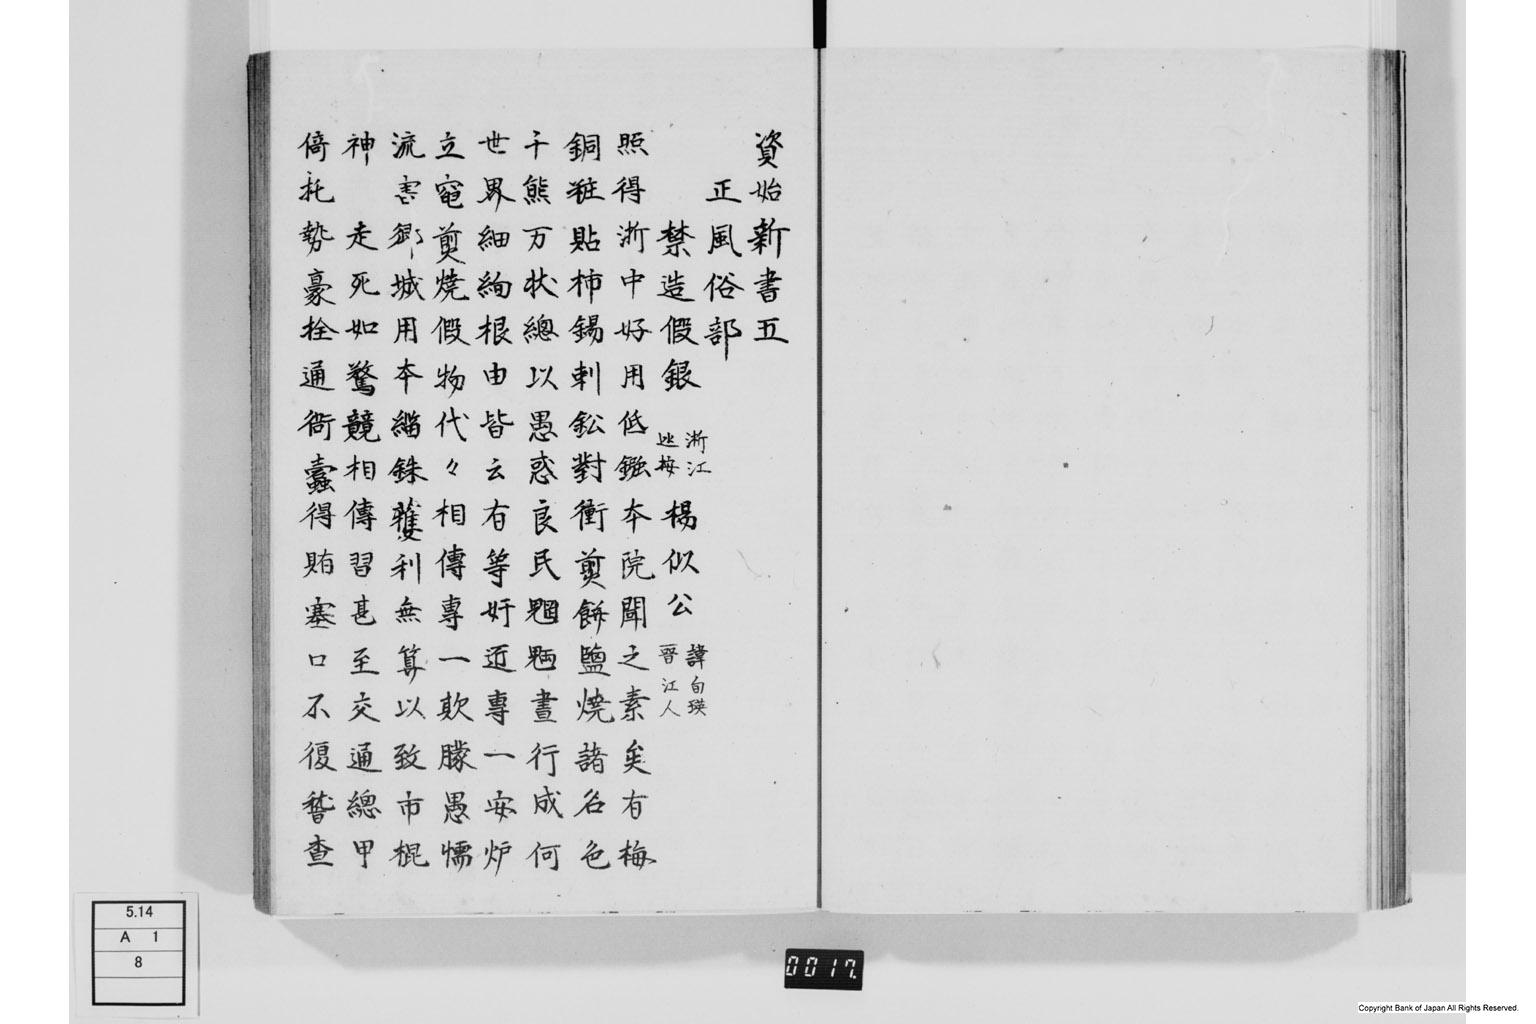 資始新書五
正風俗部
禁造假銀 浙江巡按 楊似公 諱自瑛晉江人
照得浙中好用低鏹本院聞之素矣有梅
銅粧貼柿錫剌鈆對衝剪餅鹽燒諸名色
千熊万状總以愚惑良民魍魎晝行成何
世界細絢根由皆云有等奸近專一安炉
立竈剪燒假物代々相傳專一欺朦愚懦
流害鄉城用本緇銖獲利無算以致市棍
神走死如驚競相傳習甚至交通總甲
倚托勢豪拴通衙蠹得賄塞口不復稽查
5.14
A 1
8
0017.
Copyright Bank of Japan All Rights Reserved.